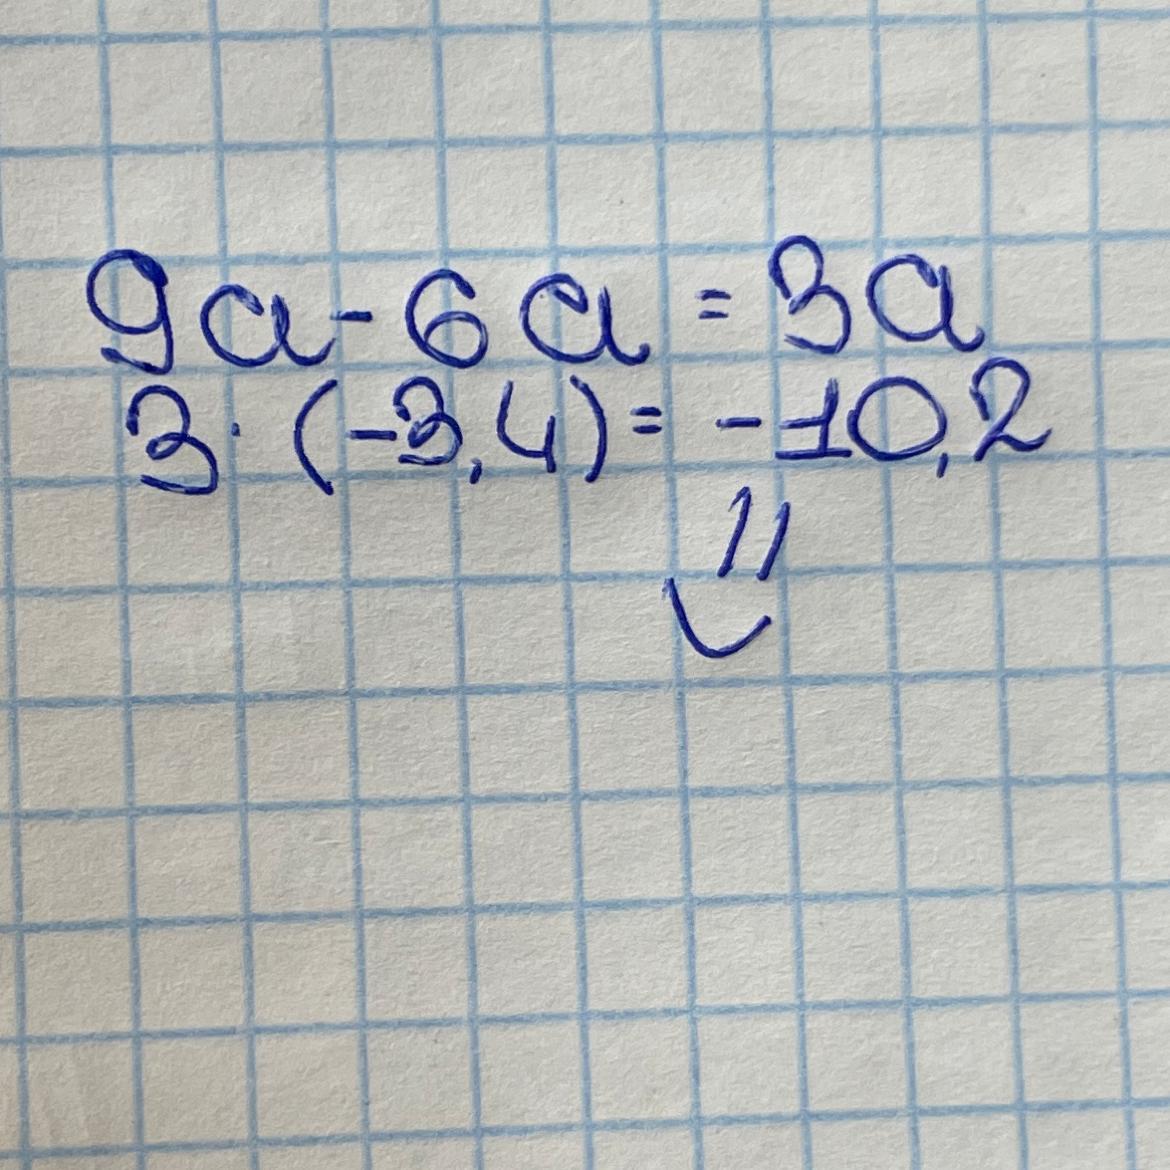 9a-6a=3a
3·(-3,4)=-10,2